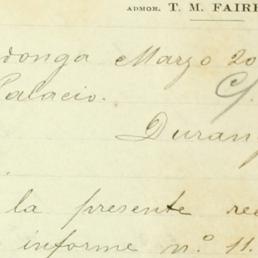 ADMOR. T. M. FAIRB
donga Marzo 20
Palacio.
Duran
la presente rec
informe n.º 11.